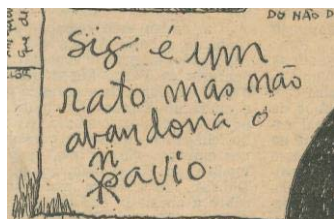 DO NÃO D
que de
Sig é um
rato mas não
abandona o
navio